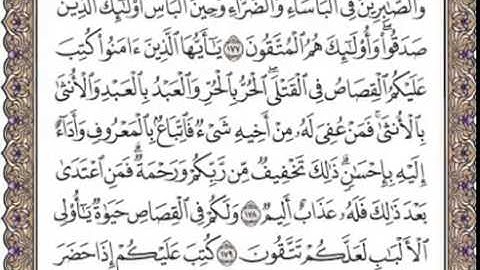 وَٱلصَّٰبِرِينَ فِى ٱلْبَأْسَآءِ وَٱلضَّرَّآءِ وَحِينَ ٱلْبَأْسِ أُو۟لَٰٓئِكَ ٱلَّذِينَ
صَدَقُوا۟ وَأُو۟لَٰٓئِكَ هُمُ ٱلْمُتَّقُونَ ١٧٧ يَٰٓأَيُّهَا ٱلَّذِينَ ءَامَنُوا۟ كُتِبَ
عَلَيْكُمُ ٱلْقِصَاصُ فِى ٱلْقَتْلَى ٱلْحُرُّ بِٱلْحُرِّ وَٱلْعَبْدُ بِٱلْعَبْدِ وَٱلْأُنثَىٰ
بِٱلْأُنثَىٰ فَمَنْ عُفِىَ لَهُۥ مِنْ أَخِيهِ شَىْءٌ فَٱتِّبَاعٌۢ بِٱلْمَعْرُوفِ وَأَدَآءٌ
إِلَيْهِ بِإِحْسَٰنٍ ذَٰلِكَ تَخْفِيفٌ مِّن رَّبِّكُمْ وَرَحْمَةٌ فَمَنِ ٱعْتَدَىٰ
بَعْدَ ذَٰلِكَ فَلَهُۥ عَذَابٌ أَلِيمٌ ١٧٨ وَلَكُمْ فِى ٱلْقِصَاصِ حَيَوٰةٌ يَٰٓأُو۟لِى
ٱلْأَلْبَٰبِ لَعَلَّكُمْ تَتَّقُونَ ١٧٩ كُتِبَ عَلَيْكُمْ إِذَا حَضَرَ